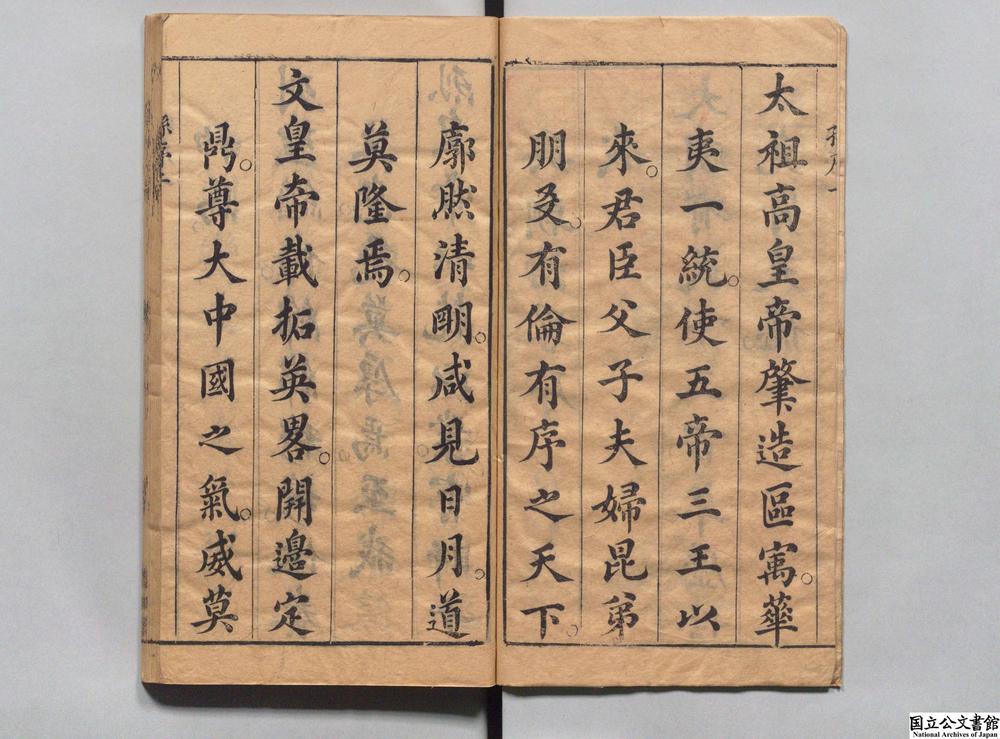 太祖高皇帝肇造區寓。華
夷一統。使五帝三王以
來。君臣父子夫婦昆弟
朋友。有倫有序之天下。
廓然清明。咸見日月。道
莫隆焉。
文皇帝載拓英畧。開邊定
鼎。尊大中國之氣。威莫
国立公文書館
National Archives of Japan